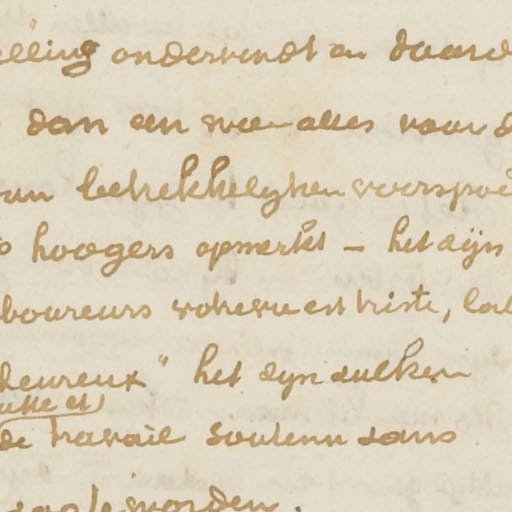 elling ondervindt en daard
dan een om alles voor d
un betrekkelyken voorspoe
hoogers opmerkt — het zijn
boureurs votre vie est triste, lab
heureux" het zyn zulken
utte et
de travail soutenu sans
worden.